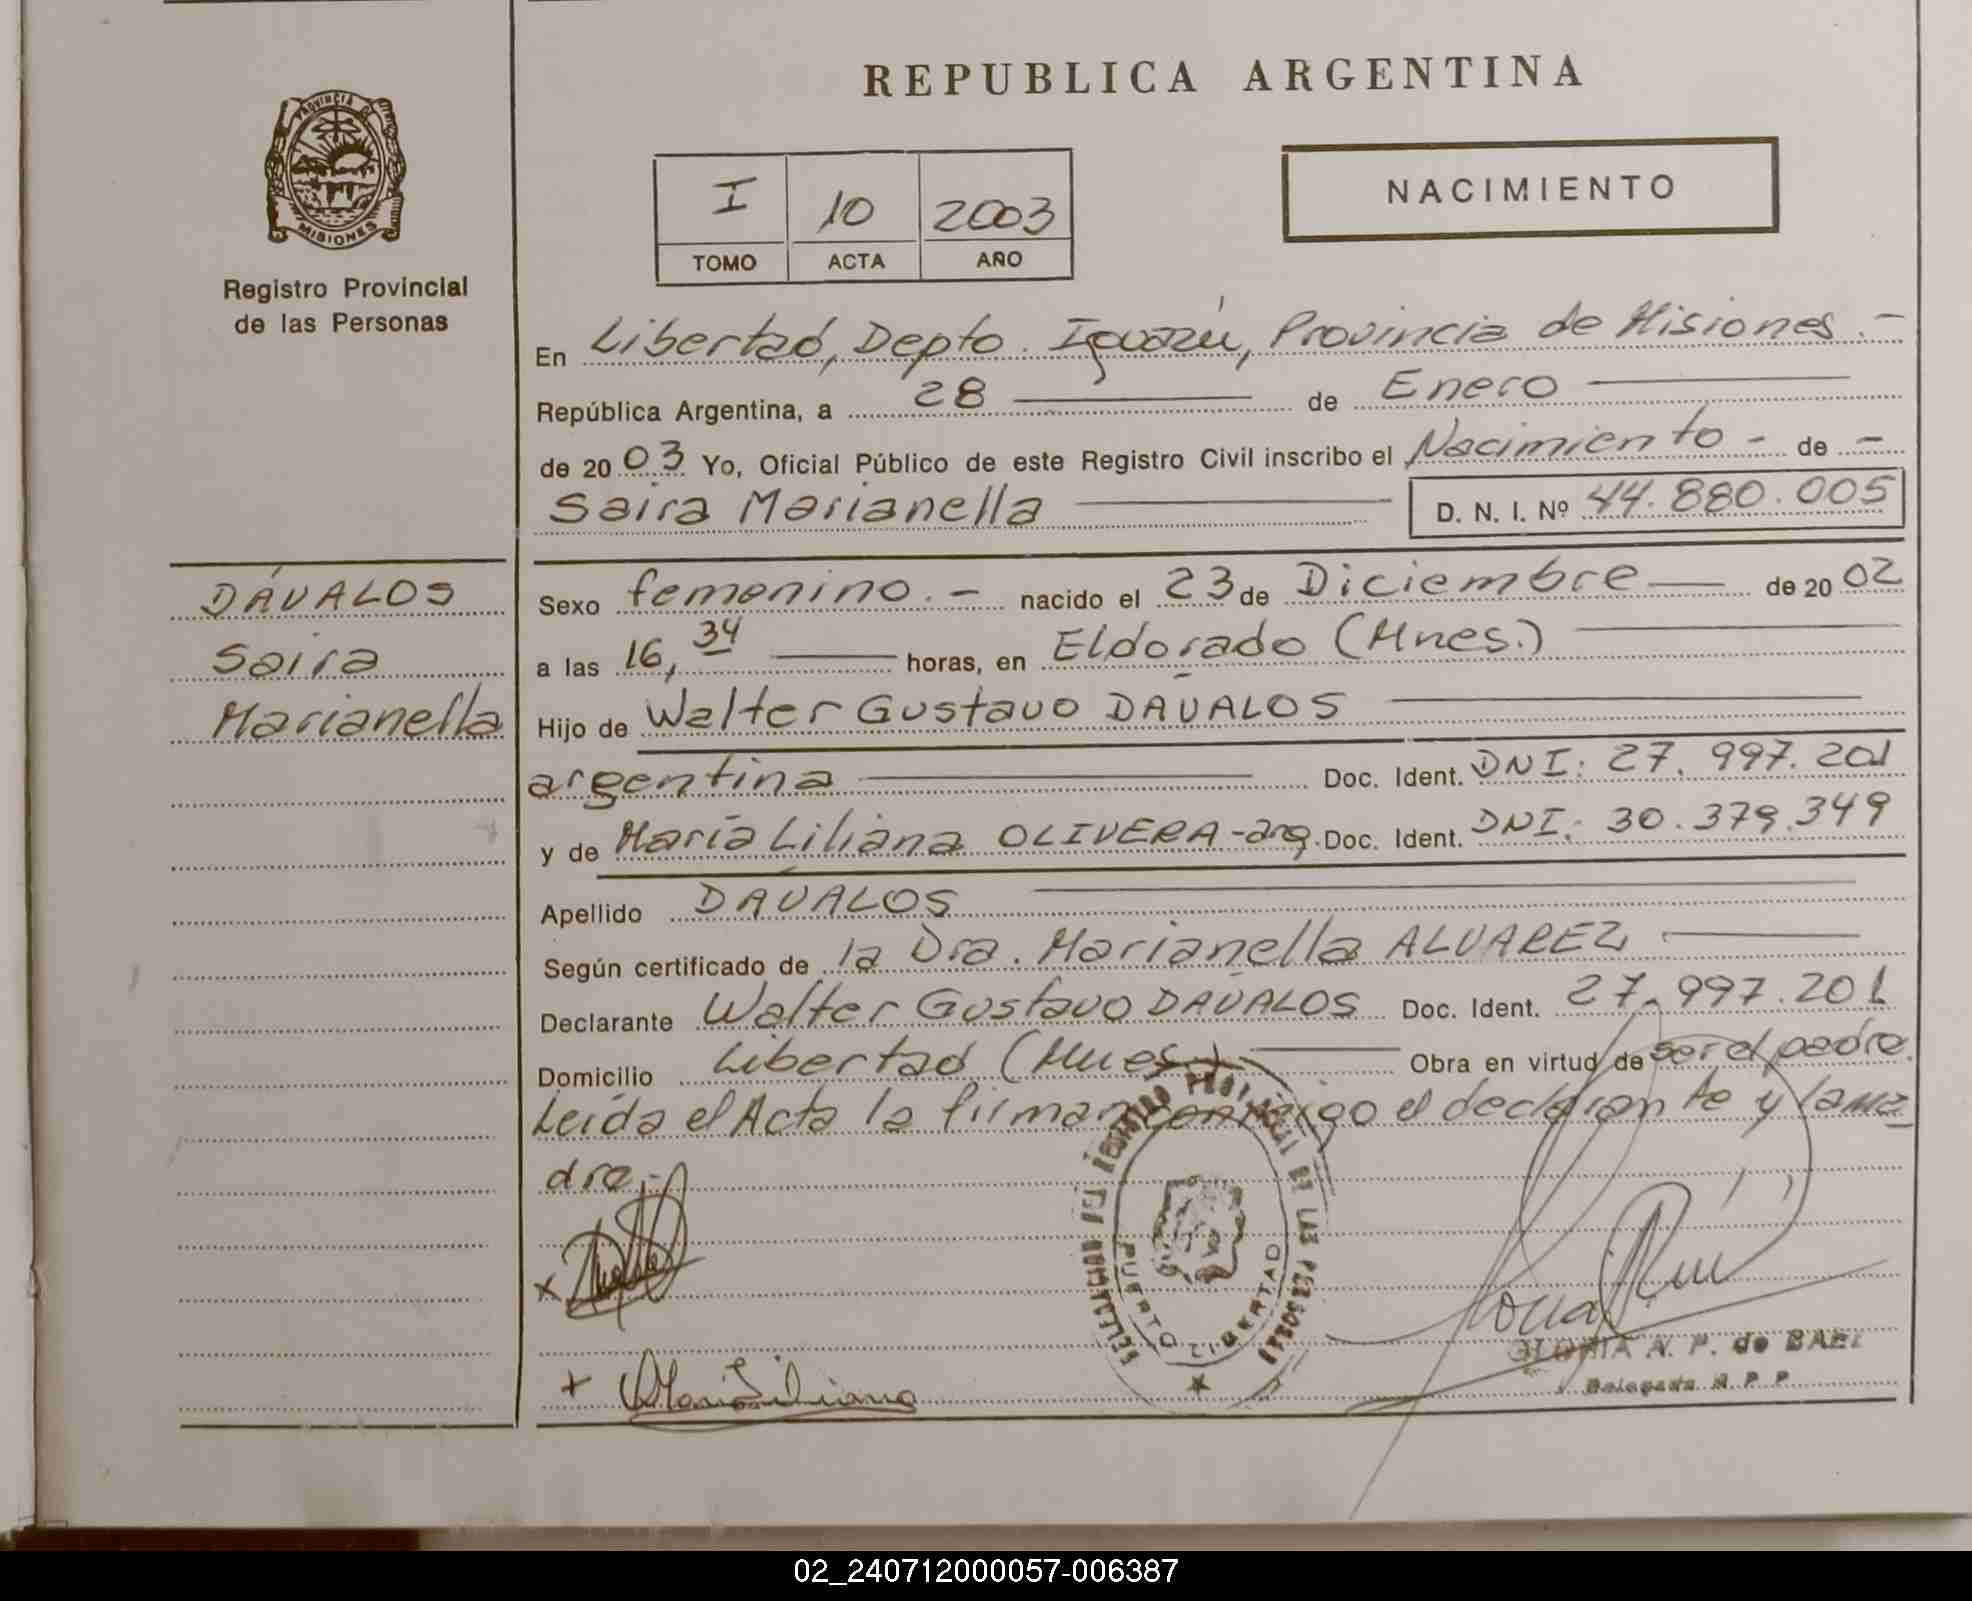 REPUBLICA ARGENTINA
PROVINCIA DE
MISIONES
Registro Provincial
de las Personas
I 10 2003
TOMO ACTA AÑO
NACIMIENTO
En Libertad, Depto. Iguazú, Provincia de Misiones.-
República Argentina, a 28 de Enero
de 2003 Yo, Oficial Público de este Registro Civil inscribo el Nacimiento - de -
Saira Marianella D. N. I. Nº 44.880.005
DÁVALOS
Saira
Marianella
Sexo femenino.- nacido el 23 de Diciembre de 2002
a las 16,34 horas, en Eldorado (Mnes.)
Hijo de Walter Gustavo DÁVALOS
argentina Doc. Ident. DNI: 27.997.201
y de María Liliana OLIVERA-arg. Doc. Ident. DNI: 30.379.349
Apellido DÁVALOS
Según certificado de la Dra. Marianella ALVAREZ
Declarante Walter Gustavo DAVALOS Doc. Ident. 27.997.201
Domicilio Libertad (Mnes.) Obra en virtud de ser el padre.
Leída el Acta la firman conmigo el declarante y la ma
dre.-
REGISTRO PROVINCIAL DE LAS PERSONAS
PUERTO LIBERTAD
x
+ Maria Liliana
GLORIA N. P. de BAEZ
Delegada R. P. P.
02_240712000057-006387